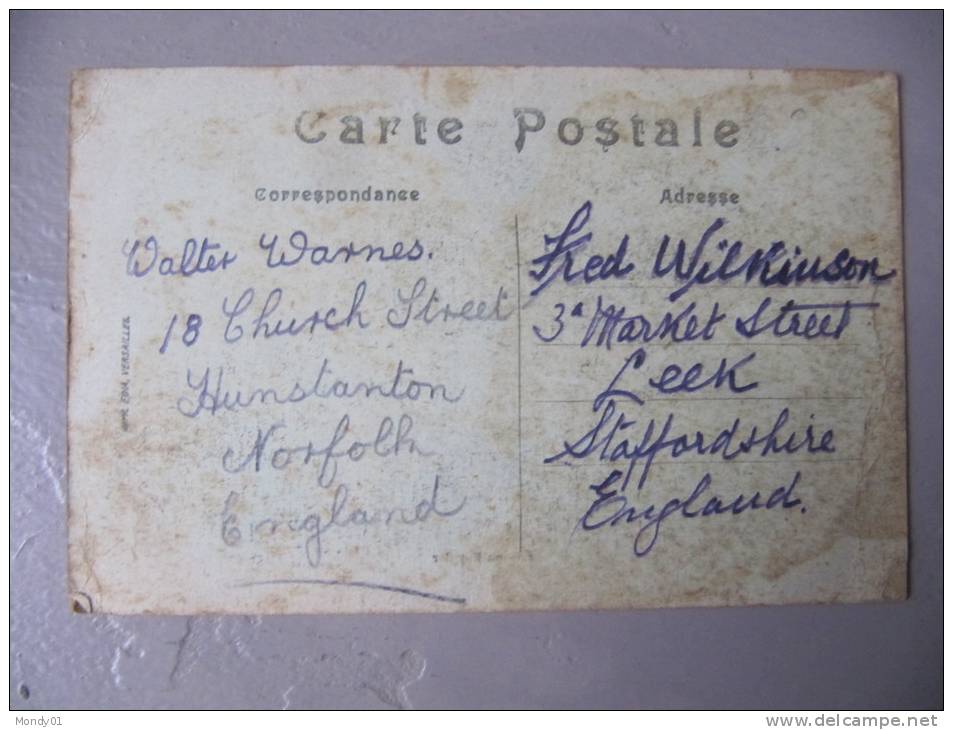 Carte Postale
Correspondance
Walter Warnes.
18 Church Street
Hunstanton
Norfolk
England
Adresse
Fred Wilkinson
3ª Market Street
Leek
Staffordshire
England.
EDIA, VERSAILLES.
Mondy01
www.delcampe.net